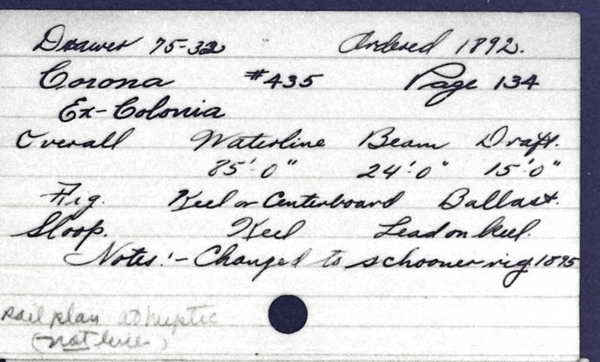 Drawer 75-32 Ordered 1892.
Corona #435 Page 134
Ex-Colonia
Overall Waterline Beam Draft.
85'-0" 24'-0" 15'-0"
Rig. Keel or Centerboard Ballast.
Sloop. Keel Lead on keel.
Notes:- Changed to schooner rig 1895
Sail plan at Mystic
(not here)